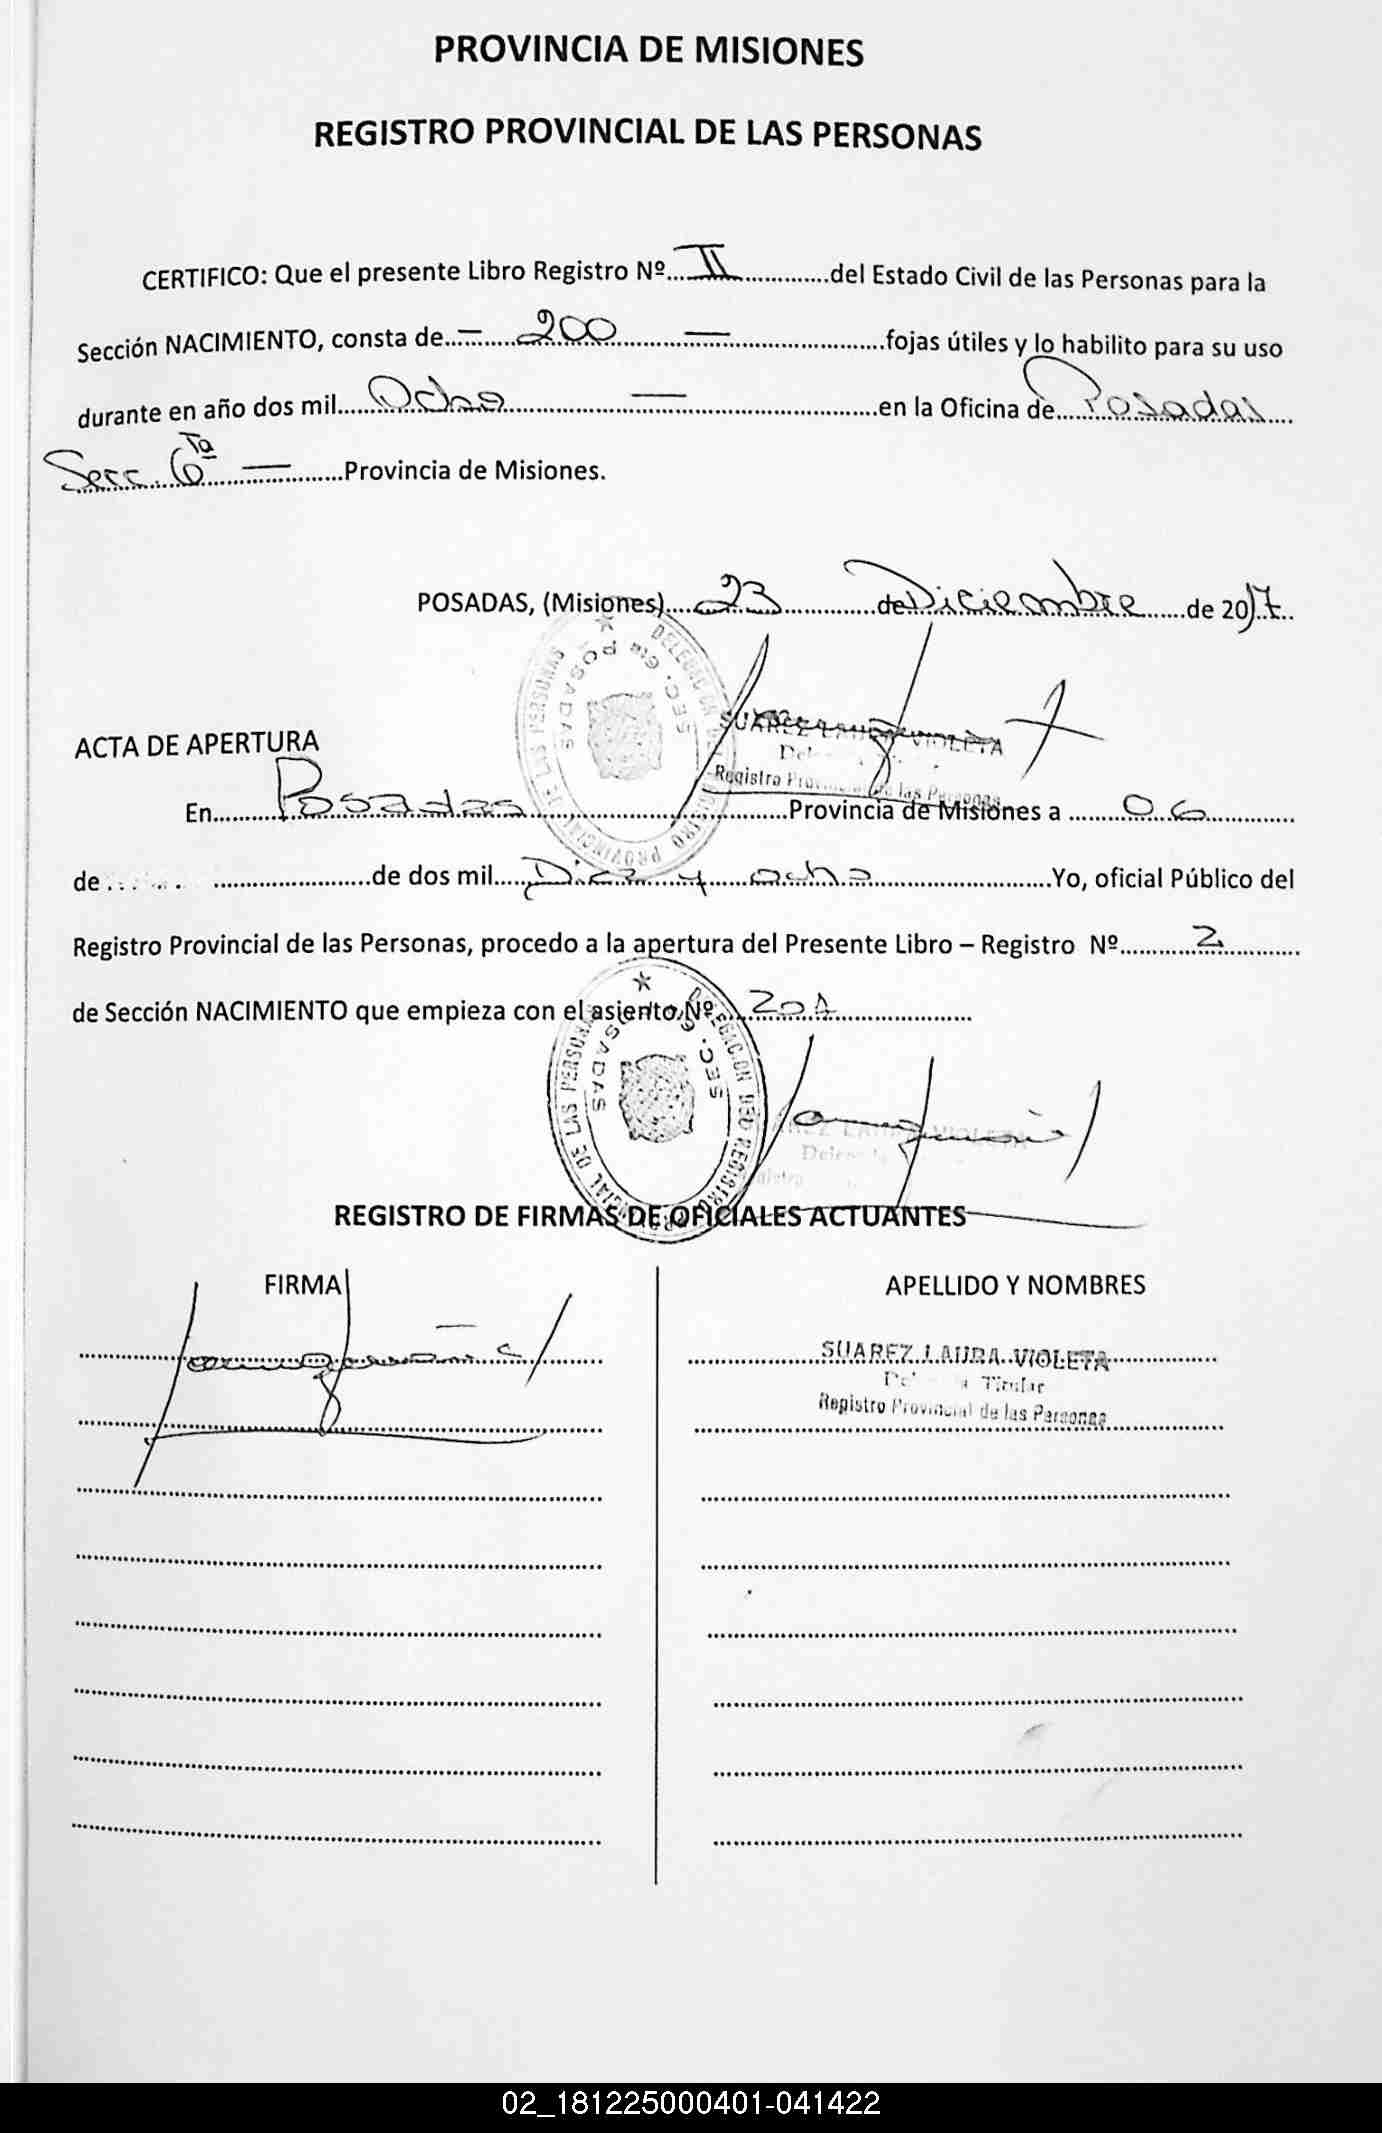 PROVINCIA DE MISIONES
REGISTRO PROVINCIAL DE LAS PERSONAS
CERTIFICO: Que el presente Libro Registro Nº.....II.............del Estado Civil de las Personas para la
Sección NACIMIENTO, consta de..—......200..........—......................fojas útiles y lo habilito para su uso
durante en año dos mil....Ocho..............—..........................en la Oficina de....Posadas....
Secc. 6ta — ........Provincia de Misiones.
POSADAS, (Misiones)....23.............de Diciembre......de 2017..
SUAREZ LAURA VIOLETA
Registro Provincial de las Personas
DELEGACION DEL REGISTRO PROVINCIAL DE LAS PERSONAS
SEC. 6ta POSADAS
ACTA DE APERTURA
En..........Posadas..............................Provincia de Misiones a ........06..............
de ..... .......................de dos mil....Diez y ocho..........................Yo, oficial Público del
Registro Provincial de las Personas, procedo a la apertura del Presente Libro – Registro Nº..........2...........
de Sección NACIMIENTO que empieza con el asiento Nº....201....................
DELEGACION DEL REGISTRO PROVINCIAL DE LAS PERSONAS
SEC. 6ta POSADAS
SUAREZ LAURA VIOLETA
REGISTRO DE FIRMAS DE OFICIALES ACTUANTES
FIRMA APELLIDO Y NOMBRES
SUAREZ LAURA VIOLETA
Titular
Registro Provincial de las Personas
02_181225000401-041422